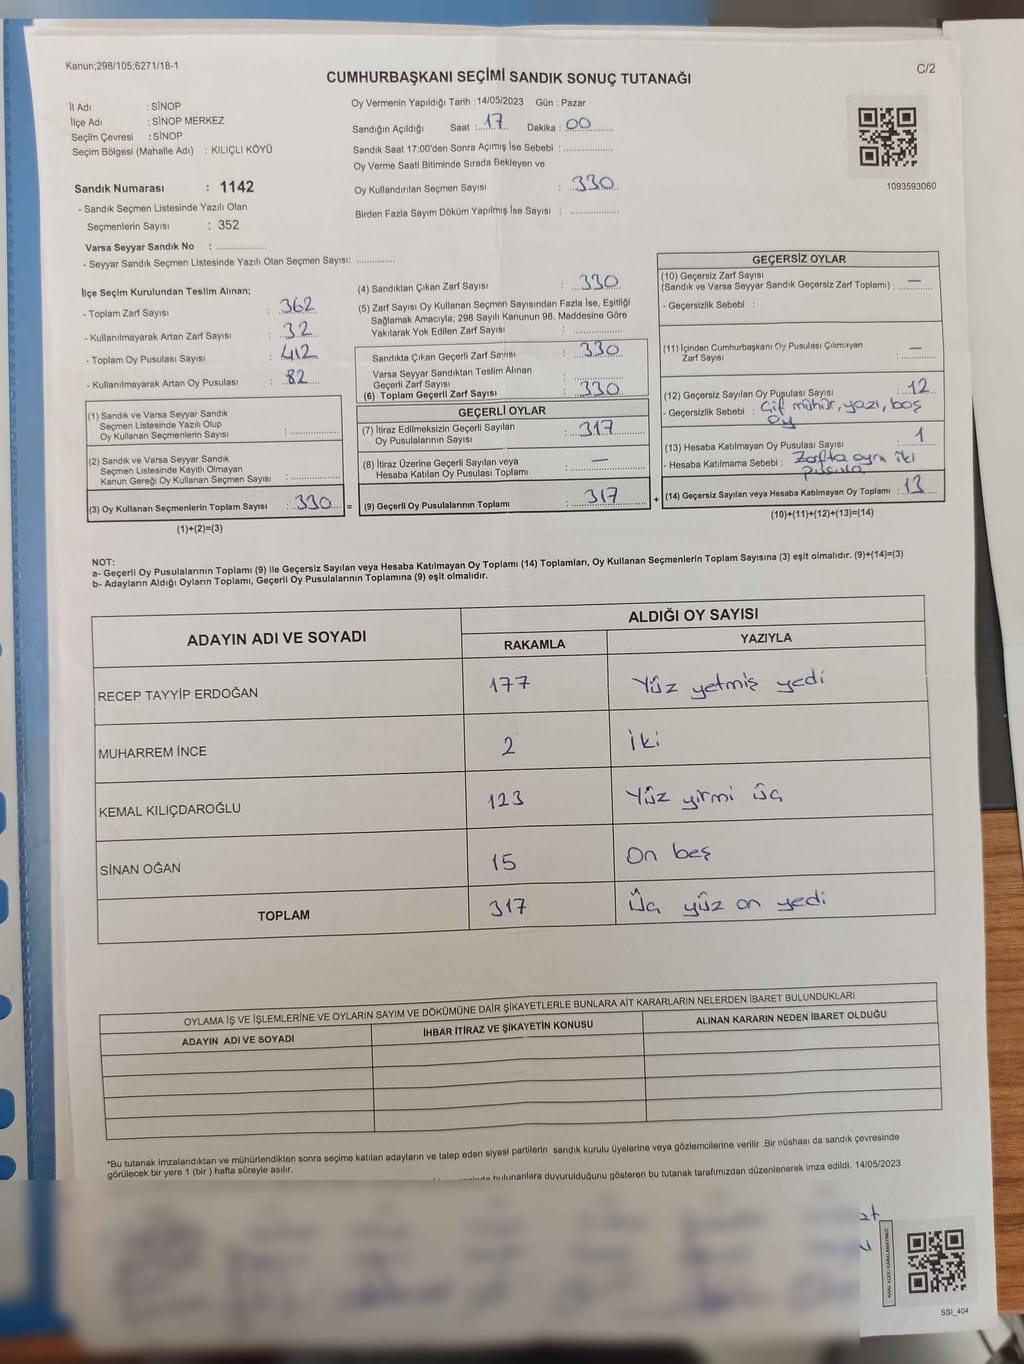 Kanun;298/105;6271/18-1
C/2
CUMHURBAŞKANI SEÇİMİ SANDIK SONUÇ TUTANAĞI
İl Adı : SİNOP
İlçe Adı : SİNOP MERKEZ
Seçim Çevresi : SİNOP
Seçim Bölgesi (Mahalle Adı) : KILIÇLI KÖYÜ
Sandık Numarası : 1142
- Sandık Seçmen Listesinde Yazılı Olan
Seçmenlerin Sayısı : 352
Varsa Seyyar Sandık No : ..................
- Seyyar Sandık Seçmen Listesinde Yazılı Olan Seçmen Sayısı: ..............
Oy Vermenin Yapıldığı Tarih :14/05/2023 Gün : Pazar
Sandığın Açıldığı Saat : 17 Dakika : 00
Sandık Saat 17:00'den Sonra Açımış İse Sebebi : ..................
Oy Verme Saati Bitiminde Sırada Bekleyen ve
Oy Kullandırılan Seçmen Sayısı : 330
Birden Fazla Sayım Döküm Yapılmış İse Sayısı : ..................
1093593060
İlçe Seçim Kurulundan Teslim Alınan;
- Toplam Zarf Sayısı : 362
- Kullanılmayarak Artan Zarf Sayısı : 32
- Toplam Oy Pusulası Sayısı : 412
- Kullanılmayarak Artan Oy Pusulası : 82
(1) Sandık ve Varsa Seyyar Sandık
Seçmen Listesinde Yazılı Olup
Oy Kullanan Seçmenlerin Sayısı : ..................
(2) Sandık ve Varsa Seyyar Sandık
Seçmen Listesinde Kayıtlı Olmayan
Kanun Gereği Oy Kullanan Seçmen Sayısı : ..................
(3) Oy Kullanan Seçmenlerin Toplam Sayısı : 330 =
(1)+(2)=(3)
(4) Sandıktan Çıkan Zarf Sayısı : 330
(5) Zarf Sayısı Oy Kullanan Seçmen Sayısından Fazla İse, Eşitliği
Sağlamak Amacıyla; 298 Sayılı Kanunun 98. Maddesine Göre
Yakılarak Yok Edilen Zarf Sayısı : ..................
Sandıkta Çıkan Geçerli Zarf Sayısı : 330
Varsa Seyyar Sandıktan Teslim Alınan
Geçerli Zarf Sayısı : ..................
(6) Toplam Geçerli Zarf Sayısı : 330
GEÇERLİ OYLAR
(7) İtiraz Edilmeksizin Geçerli Sayılan
Oy Pusulalarının Sayısı : 317
(8) İtiraz Üzerine Geçerli Sayılan veya
Hesaba Katılan Oy Pusulası Toplamı : —
(9) Geçerli Oy Pusulalarının Toplamı : 317 +
GEÇERSİZ OYLAR
(10) Geçersiz Zarf Sayısı
(Sandık ve Varsa Seyyar Sandık Geçersiz Zarf Toplamı) : —
- Geçersizlik Sebebi :
(11) İçinden Cumhurbaşkanı Oy Pusulası Çıkmayan
Zarf Sayısı : —
(12) Geçersiz Sayılan Oy Pusulası Sayısı : 12
- Geçersizlik Sebebi : Çift mühür, yazı, boş
oy
(13) Hesaba Katılmayan Oy Pusulası Sayısı : 1
- Hesaba Katılmama Sebebi : Zarfta ayrı iki
pusula
(14) Geçersiz Sayılan veya Hesaba Katılmayan Oy Toplamı : 13
(10)+(11)+(12)+(13)=(14)
NOT:
a- Geçerli Oy Pusulalarının Toplamı (9) ile Geçersiz Sayılan veya Hesaba Katılmayan Oy Toplamı (14) Toplamları, Oy Kullanan Seçmenlerin Toplam Sayısına (3) eşit olmalıdır. (9)+(14)=(3)
b- Adayların Aldığı Oyların Toplamı, Geçerli Oy Pusulalarının Toplamına (9) eşit olmalıdır.
ADAYIN ADI VE SOYADI
ALDIĞI OY SAYISI
RAKAMLA YAZIYLA
RECEP TAYYİP ERDOĞAN 177 Yüz yetmiş yedi
MUHARREM İNCE 2 İki
KEMAL KILIÇDAROĞLU 123 Yüz yirmi üç
SİNAN OĞAN 15 On beş
TOPLAM 317 Üç yüz on yedi
OYLAMA İŞ VE İŞLEMLERİNE VE OYLARIN SAYIM VE DÖKÜMÜNE DAİR ŞİKAYETLERLE BUNLARA AİT KARARLARIN NELERDEN İBARET BULUNDUKLARI
ADAYIN ADI VE SOYADI İHBAR İTİRAZ VE ŞİKAYETİN KONUSU ALINAN KARARIN NEDEN İBARET OLDUĞU
*Bu tutanak imzalandıktan ve mühürlendikten sonra seçime katılan adayların ve talep eden siyasi partilerin sandık kurulu üyelerine veya gözlemcilerine verilir .Bir nüshası da sandık çevresinde
görülecek bir yere 1 (bir ) hafta süreyle asılır.
bulunanlara duyurulduğunu gösteren bu tutanak tarafımızdan düzenlenerek imza edildi. 14/05/2023
KARE KODU KARALAMAYINIZ!
SSI_404